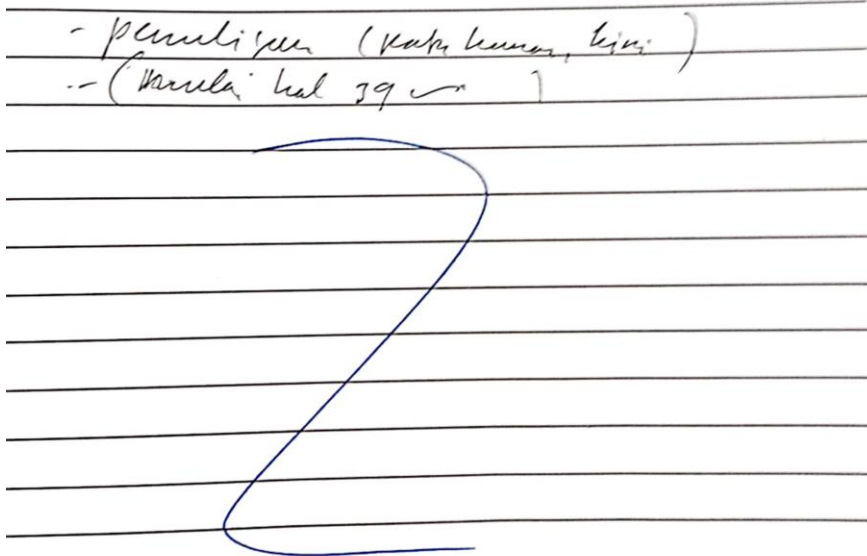 - penulisan (rata kanan, kiri)
- (Mulai hal 39 )